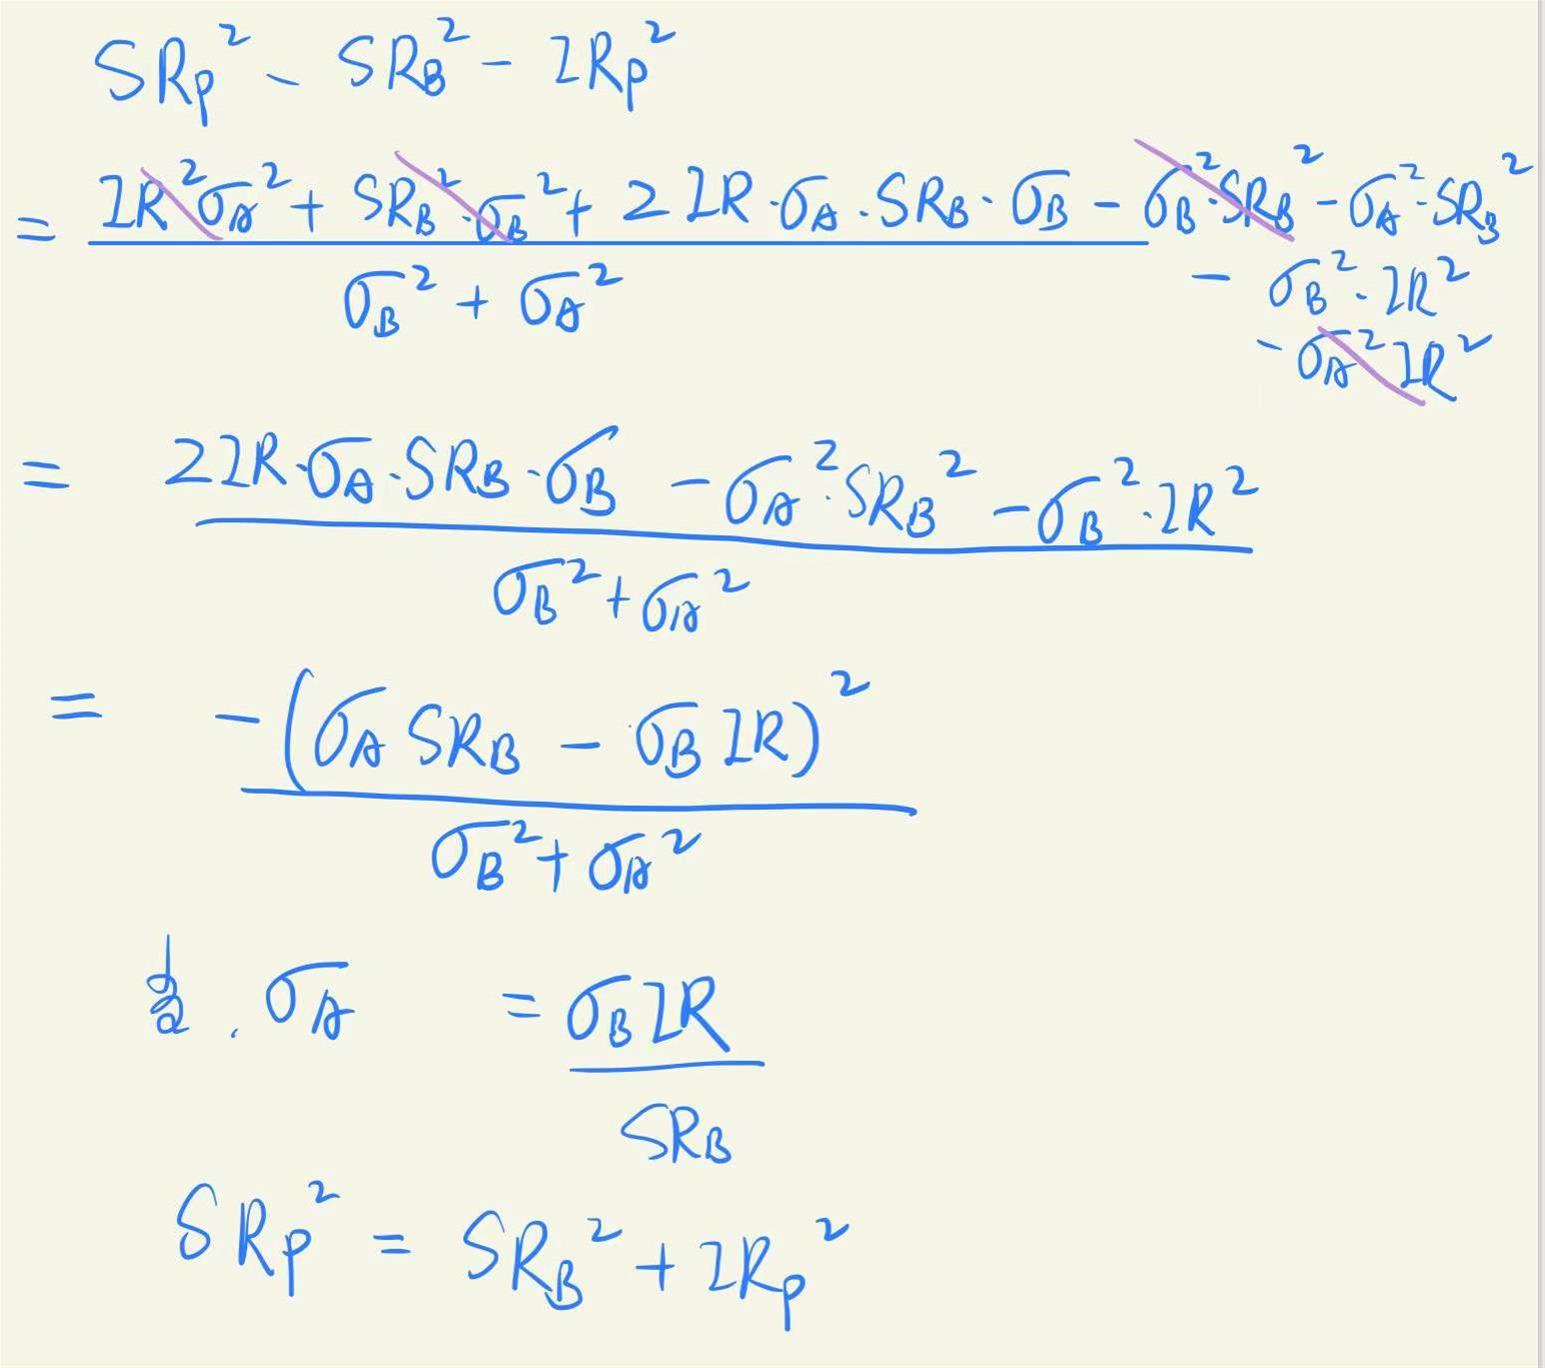 SRp² - SRB² - IRp²
= IR²σA² + SRB²·σB² + 2IR·σA·SRB·σB - σB²·SRB² - σA²·SRB²
- σB²·IR²
- σA²IR²
σB² + σA²
= 2IR·σA·SRB·σB - σA²·SRB² - σB²·IR²
σB² + σA²
= -(σA SRB - σB IR)²
σB² + σA²
当. σA = σB IR
SRB
SRp² = SRB² + IRp²